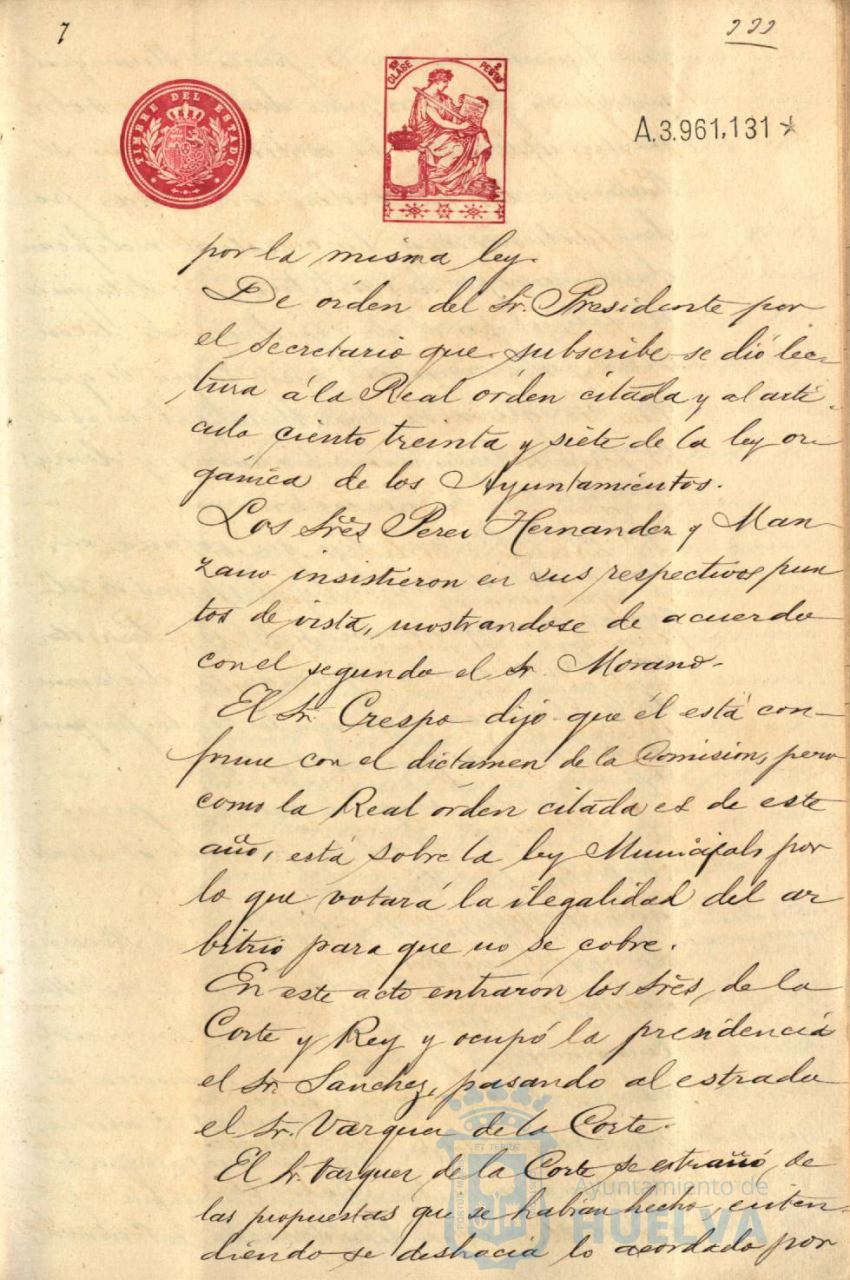 7
222
TIMBRE DEL ESTADO
CLASE
PESETAS
A.3.961,131
por la misma ley.
De órden del Sr. Presidente por
el secretario que subscribe se dió lec-
tura á la Real órden citada y al artí-
culo ciento treinta y siete de la ley or-
gánica de los Ayuntamientos.
Los Sres Perez Hernandez y Man-
zano insistieron en sus respectivos pun
tos de vista, mostrandose de acuerdo
con el segundo el Sr. Morano.
El Sr. Crespo dijo que él está con-
forme con el dictamen de la Comisión, pero
como la Real órden citada es de este
año, está sobre la ley Municipal, por
lo que votará la ilegalidad del ar
bitrio para que no se cobre.
En este acto entraron los Sres de la
Corte y Rey y ocupó la presidencia
el Sr. Sanchez, pasando al estrado
el Sr. Vazquez de la Corte.
El Sr. Vazquez de la Corte se extrañó de
las propuestas que se habian hecho, enten-
diendo se deshacia lo acordado por
Ayuntamiento de
HUELVA